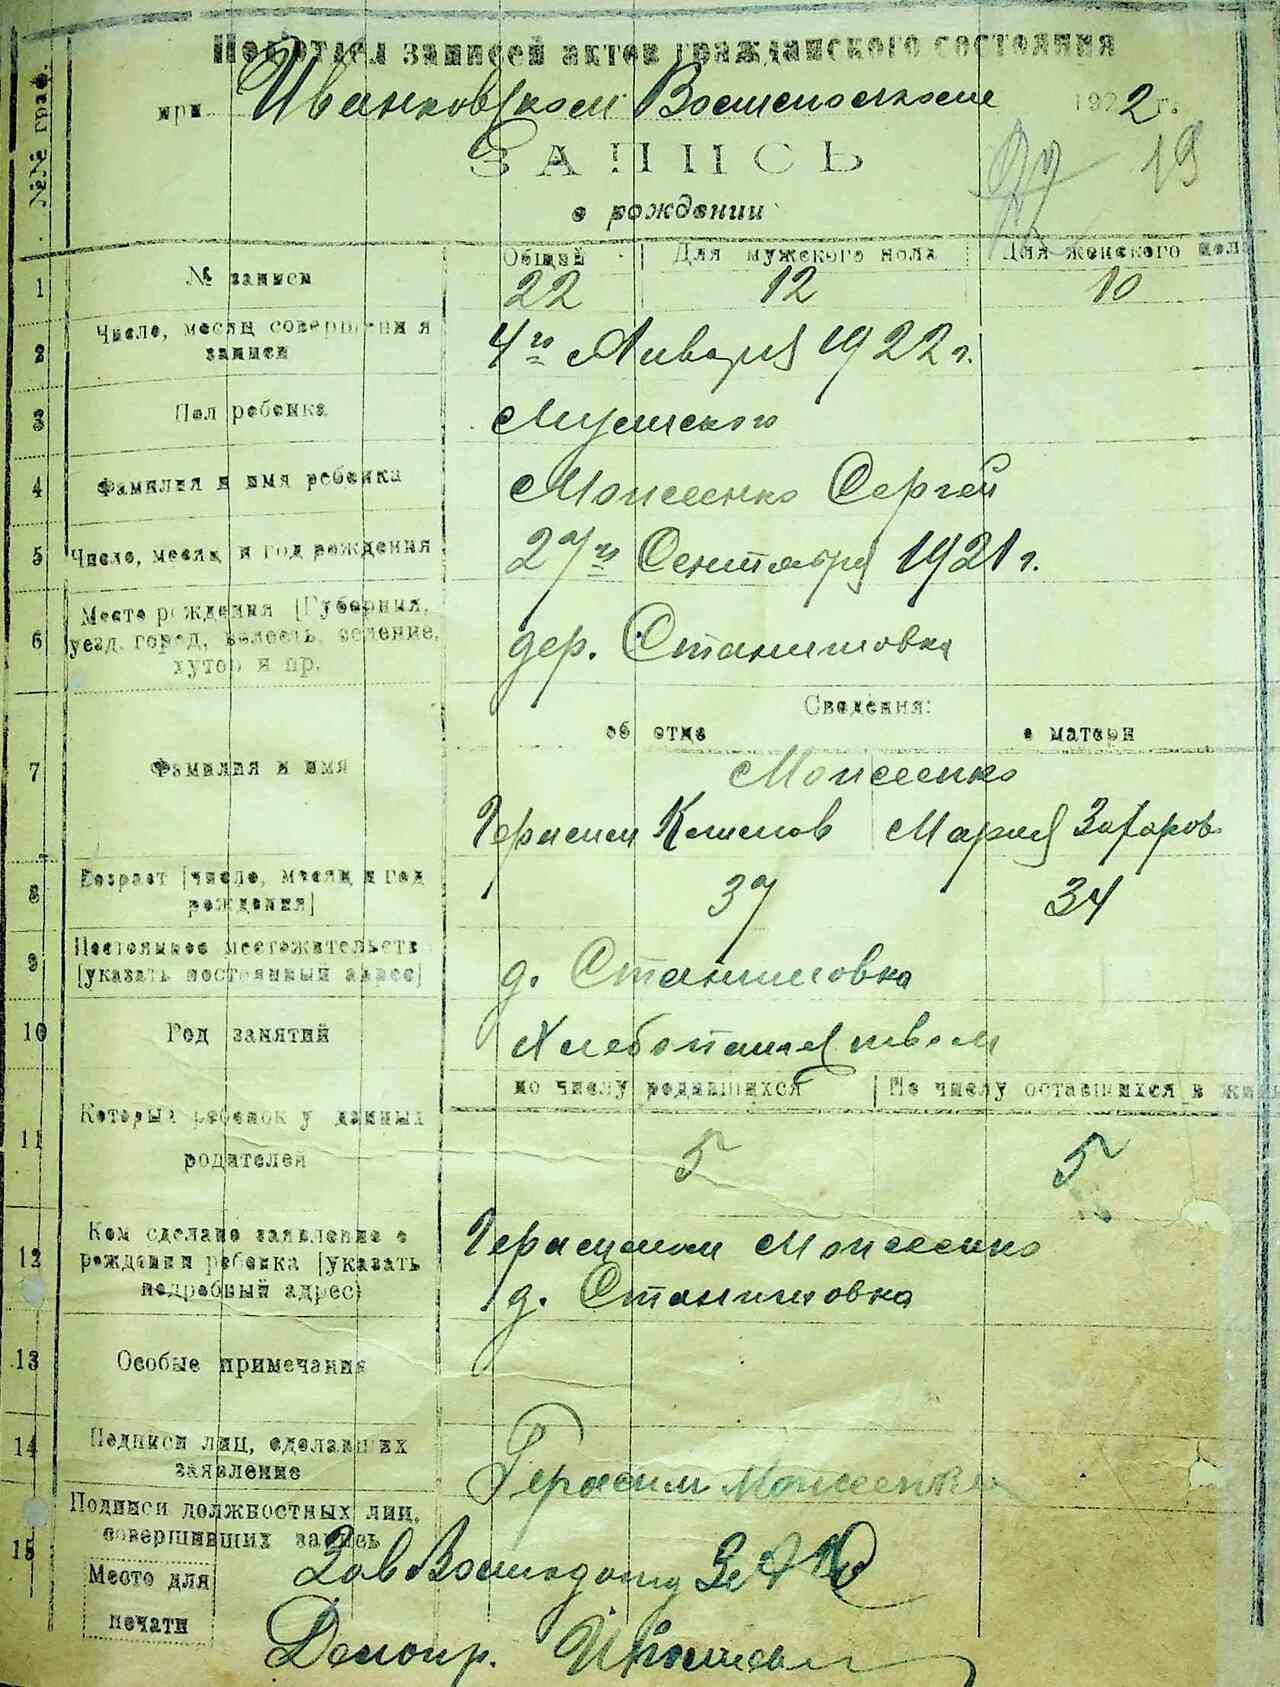 Подотдел записей актов гражданского состояния
№№ граф.
при Иванковском Волисполкоме 1922 г.
ЗАПИСЬ 19
о рождении
Общий Для мужского пола Для женского пола
1 № записи 22 12 10
2 Число, месяц совершения записи 4го Января 1922 г.
3 Пол ребенка Мужского
4 Фамилия и имя ребенка Моисеенко Сергей
5 Число, месяц и год рождения 27го Сентября 1921 г.
6 Место рождения [Губерния,
уезд, город, волость, селение,
хутор и пр. дер. Станишовка
Сведения:
об отце о матери
7 Фамилия и имя Моисеенко
Герасим Климов Мария Захаров
8 Возраст [число, месяц и год
рождения] 37 34
9 Постоянное местожительств
[указать постоянный адрес] д. Станишовка
10 Род занятий Хлебопашеством
по числу родившихся По числу оставшихся в жив
11 Который ребенок у данных
родителей 5 5
12 Кем сделано заявление о
рождении ребенка [указать
подробный адрес] Герасимом Моисеенко
д. Станишовка
13 Особые примечания
14 Подписи лиц, сделавших
заявление Герасим Моисеенко
15 Подписи должностных лиц,
совершивших запись
Место для
печати
Зав
Делопр.